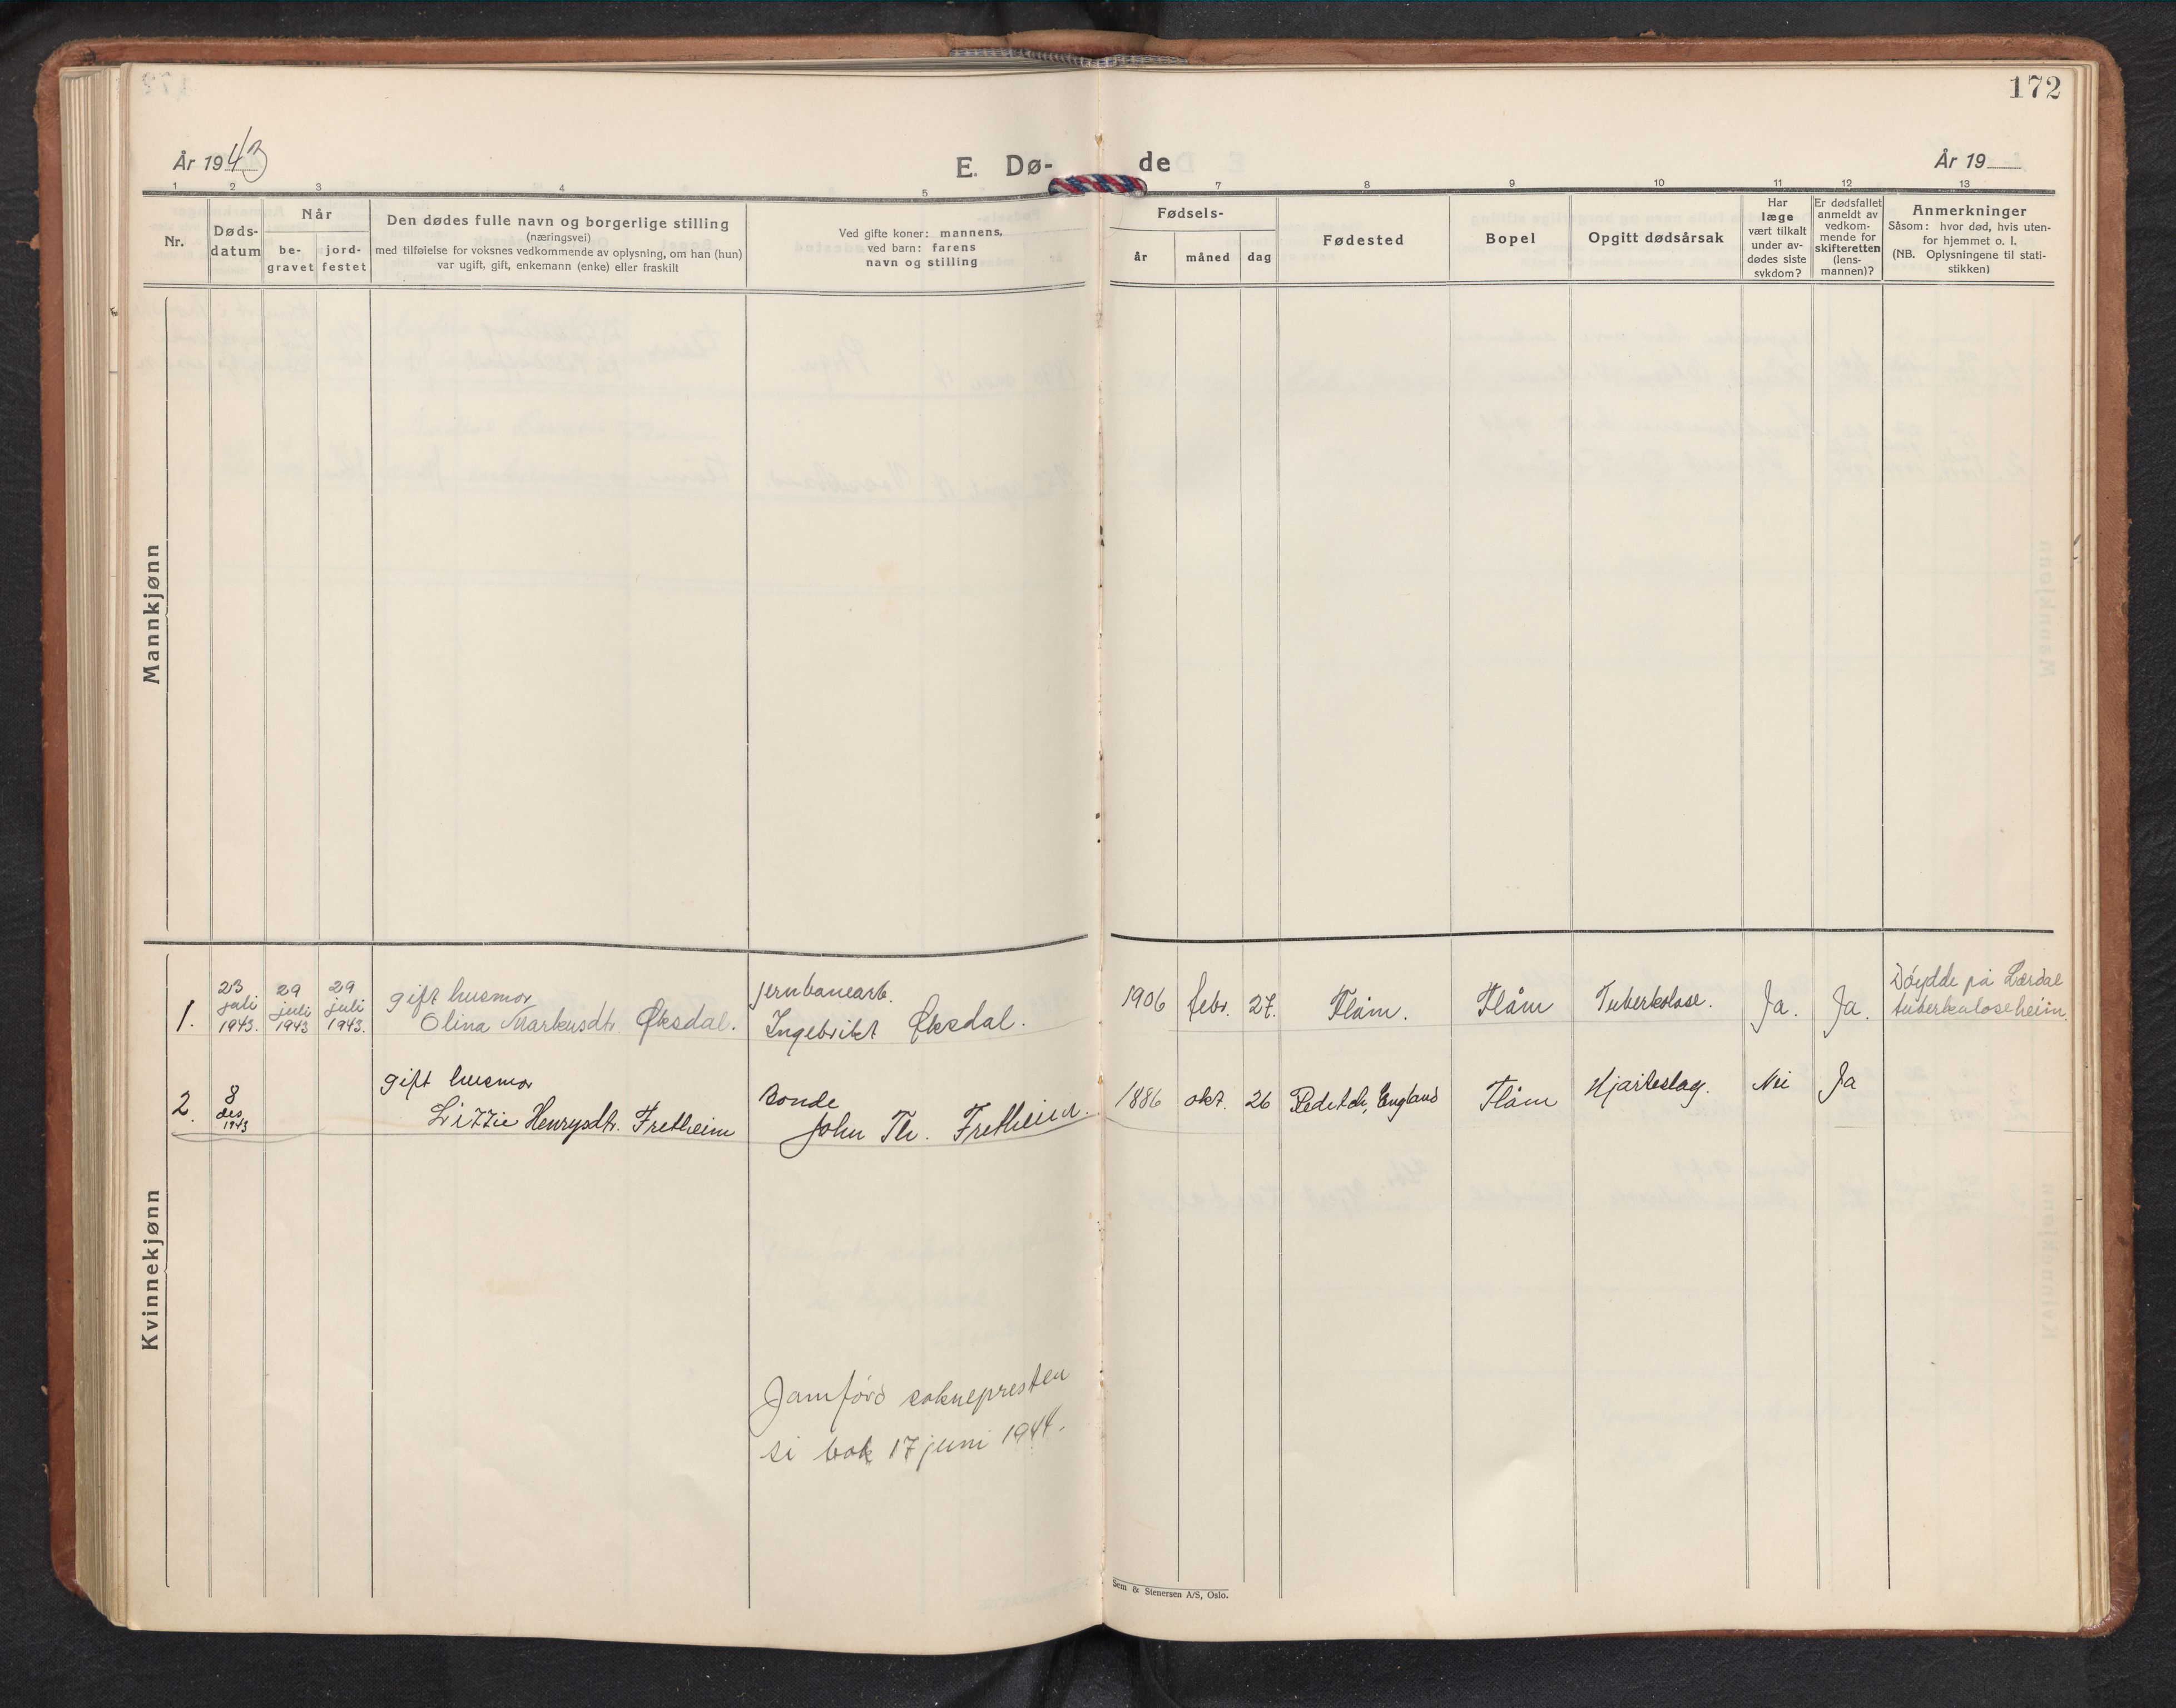 172
År 1943
E. Dø-
de
År 19
1 2 3 4 5 7 8 9 10 11 12 13
Nr.
Døds-
datum
Når
be-
gravet
jord-
festet
Den dødes fulle navn og borgerlige stilling
(næringsvei)
med tilføielse for voksnes vedkommende av oplysning, om han (hun)
var ugift, gift, enkemann (enke) eller fraskilt
Ved gifte koner: mannens,
ved barn: farens
navn og stilling
Fødsels-
år
måned
dag
Fødested
Bopel
Opgitt dødsårsak
Har
læge
vært tilkalt
under av-
dødes siste
sykdom?
Er dødsfallet
anmeldt av
vedkom-
mende for
skifteretten
(lens-
mannen)?
Anmerkninger
Såsom: hvor død, hvis uten-
for hjemmet o. l.
(NB. Oplysningene til stati-
stikken)
Mannkjønn
Kvinnekjønn
1.
23
juli
1943.
29
juli
1943
29
juli
1943.
gift husmor
Olina Markusdtr. Øksdal.
jernbanearb.
Ingebrikt Øksdal.
1906 febr. 27. Flåm. Flåm Tuberkolose. Ja. Ja.
Døydde på Lærdal
tuberkuloseheim.
2.
8
des
1943
gift husmor
Lizzie Henrysdtr. Fretheim
Bonde
John Th. Fretheim.
1886 okt. 26 Reditch, England Flåm Hjarteslag. Nei Ja
Jamførd soknepresten
si bok 17 juni 1944.
Sem & Stenersen A/S, Oslo.